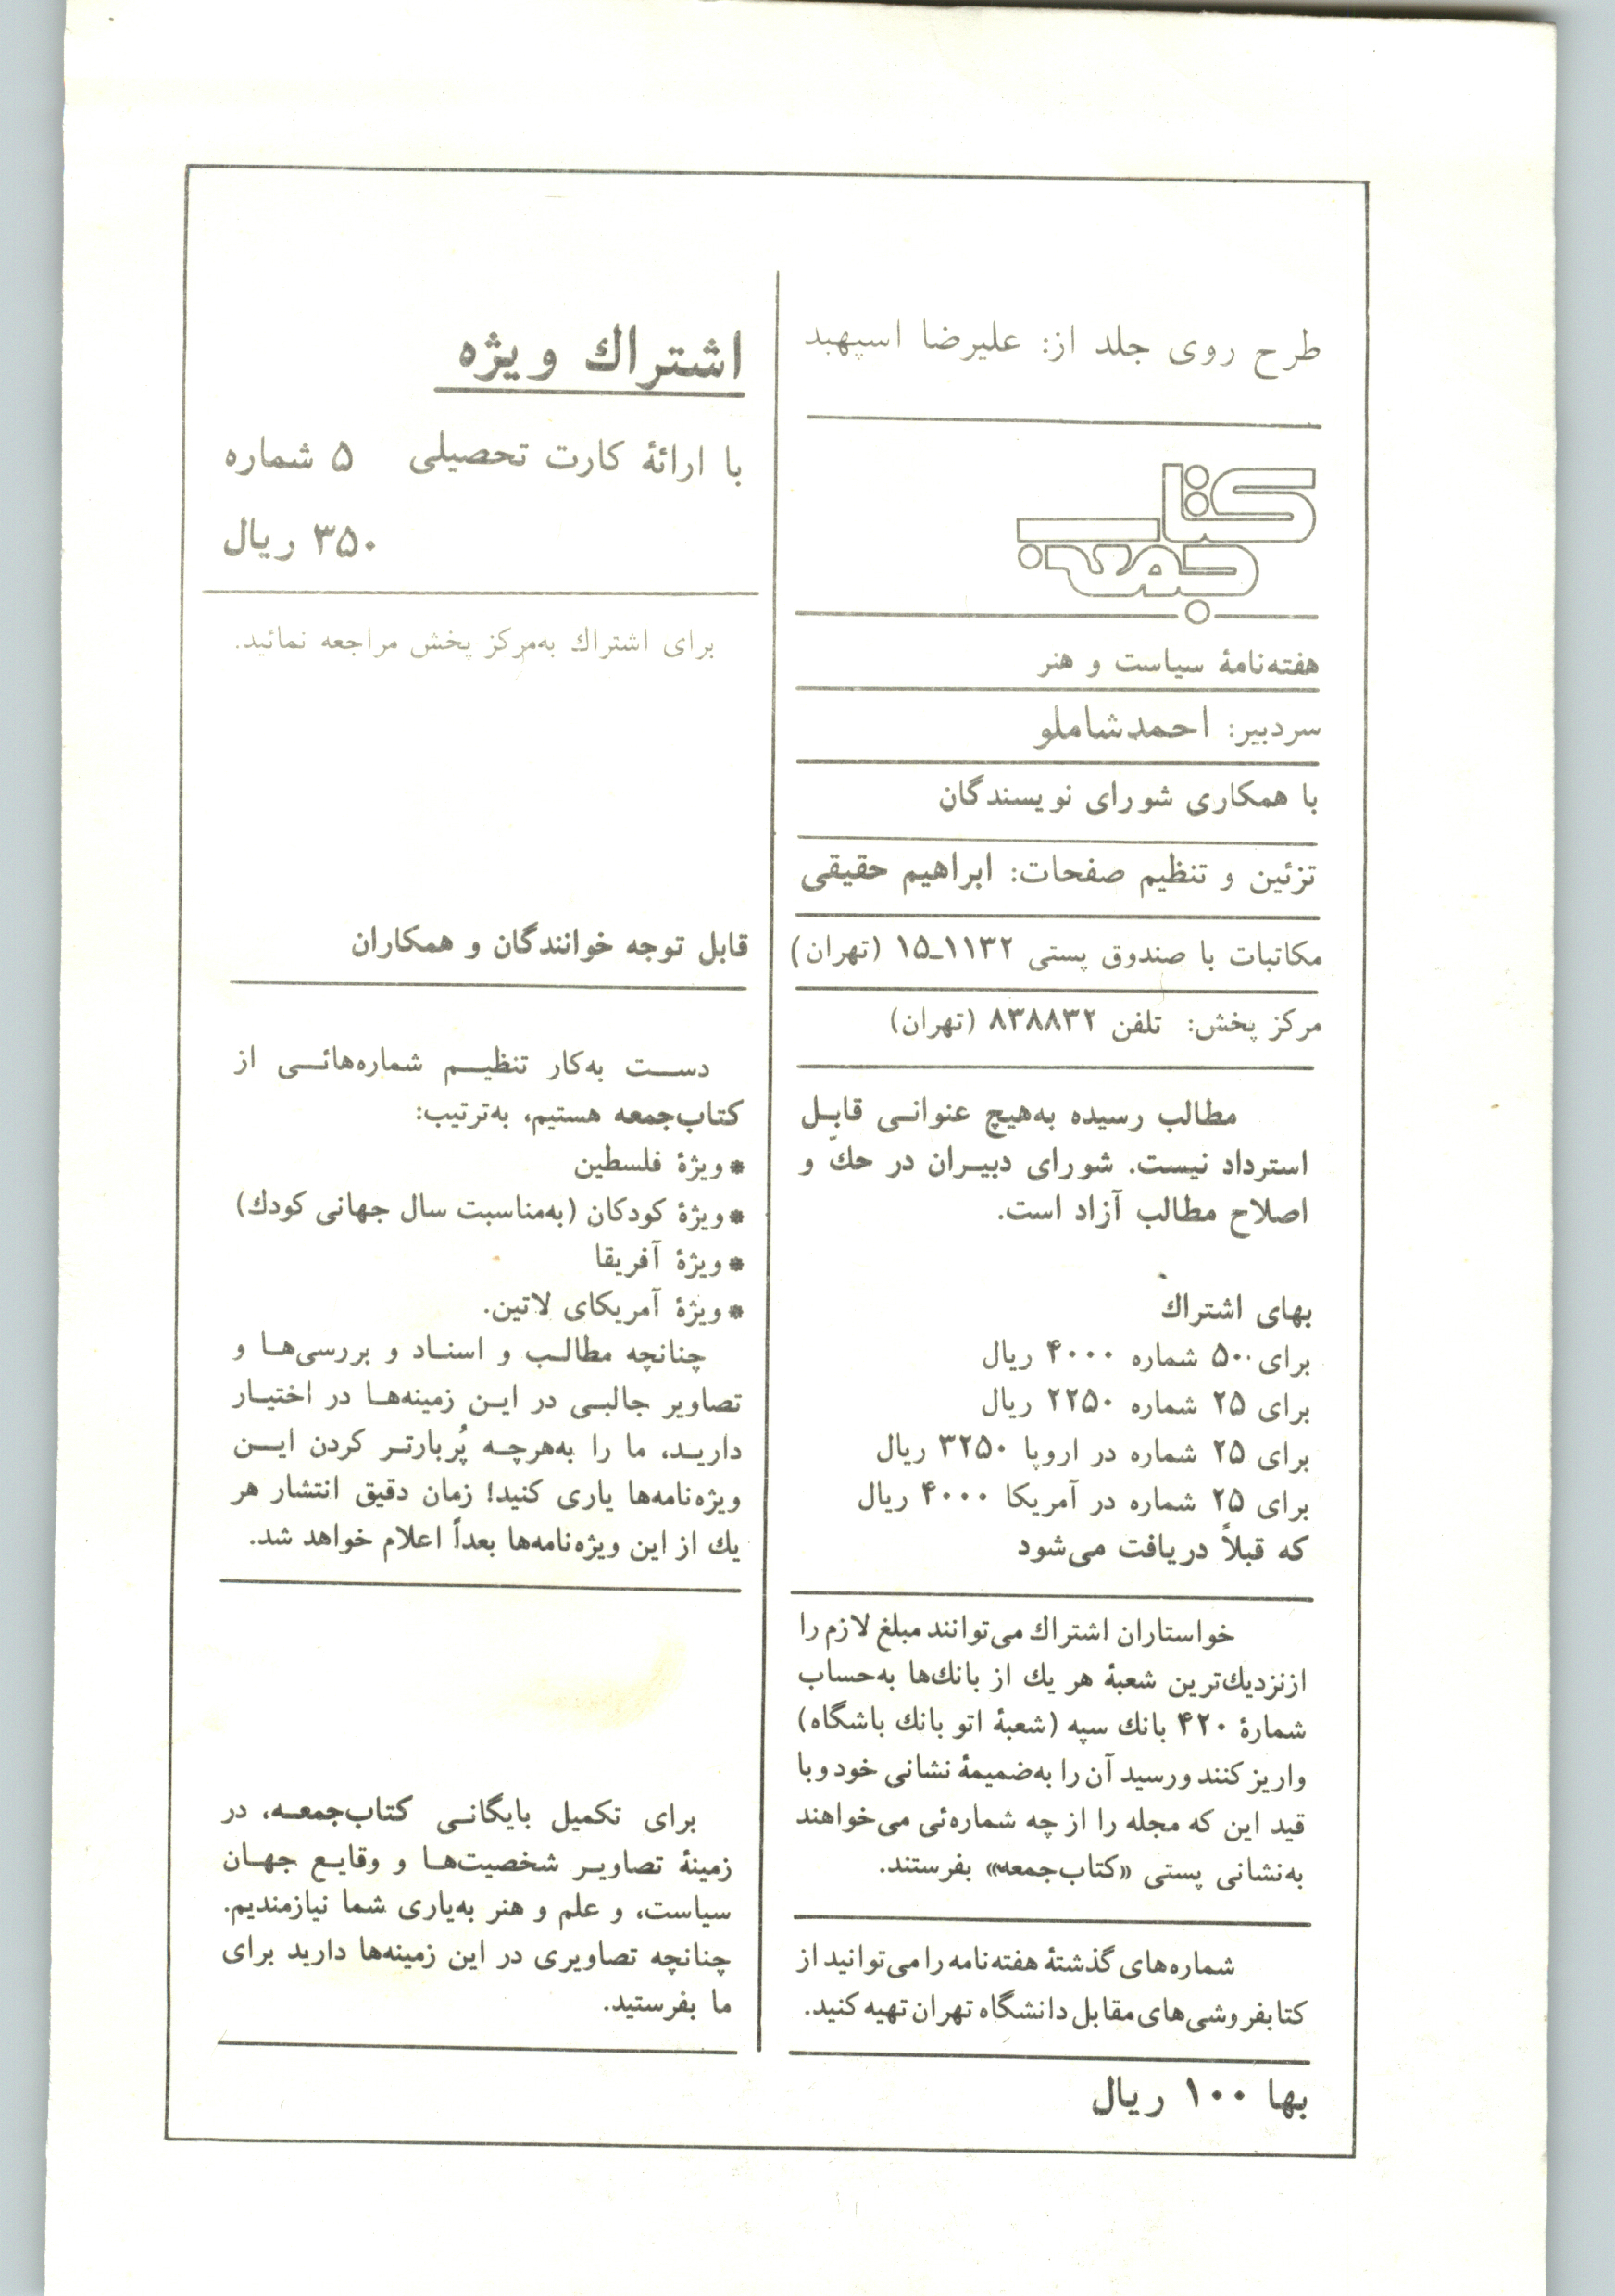 طرح روی جلد از: علیرضا اسپهبد
کتاب
جمعه
هفته‌نامهٔ سیاست و هنر
سردبیر: احمد شاملو
با همکاری شورای نویسندگان
تزئین و تنظیم صفحات: ابراهیم حقیقی
مکاتبات با صندوق پستی ۱۱۳۲ـ۱۵ (تهران)
مرکز پخش: تلفن ۸۳۸۸۳۲ (تهران)
مطالب رسیده به‌هیچ عنوانی قابل
استرداد نیست. شورای دبیران در حكّ و
اصلاح مطالب آزاد است.
بهای اشتراك
برای ۵۰ شماره ۴۰۰۰ ریال
برای ۲۵ شماره ۲۲۵۰ ریال
برای ۲۵ شماره در اروپا ۳۲۵۰ ریال
برای ۲۵ شماره در آمریکا ۴۰۰۰ ریال
که قبلاً دریافت می‌شود
خواستاران اشتراك می‌توانند مبلغ لازم را
ازنزدیك‌ترین شعبهٔ هر یك از بانك‌ها به‌حساب
شمارهٔ ۴۲۰ بانك سپه (شعبهٔ اتو بانك باشگاه)
واریز کنند و رسید آن را به‌ضمیمهٔ نشانی خود و با
قید این که مجله را از چه شماره‌ئی می‌خواهند
به‌نشانی پستی «کتاب‌جمعه» بفرستند.
شماره‌های گذشتهٔ هفته‌نامه را می‌توانید از
کتابفروشی‌های مقابل دانشگاه تهران تهیه کنید.
بها ۱۰۰ ریال
اشتراك ویژه
با ارائهٔ کارت تحصیلی ۵ شماره
۳۵۰ ریال
برای اشتراك به‌مرکز پخش مراجعه نمائید.
قابل توجه خوانندگان و همکاران
دست به‌کار تنظیم شماره‌هائی از
کتاب‌جمعه هستیم، به‌ترتیب:
*ویژهٔ فلسطین
*ویژهٔ کودکان (به‌مناسبت سال جهانی کودك)
*ویژهٔ آفریقا
*ویژهٔ آمریکای لاتین.
چنانچه مطالب و اسناد و بررسی‌ها و
تصاویر جالبی در این زمینه‌ها در اختیار
دارید، ما را به‌هرچه پُربارتر کردن این
ویژه‌نامه‌ها یاری کنید! زمان دقیق انتشار هر
یك از این ویژه‌نامه‌ها بعداً اعلام خواهد شد.
برای تکمیل بایگانی کتاب‌جمعه، در
زمینهٔ تصاویر شخصیت‌ها و وقایع جهان
سیاست، و علم و هنر به‌یاری شما نیازمندیم.
چنانچه تصاویری در این زمینه‌ها دارید برای
ما بفرستید.